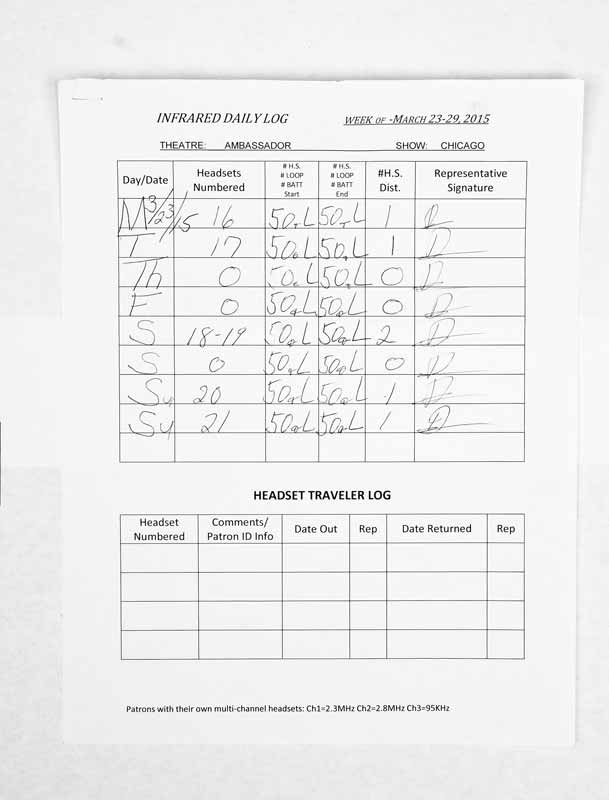 INFRARED DAILY LOG WEEK OF -MARCH 23-29, 2015
THEATRE: AMBASSADOR SHOW: CHICAGO
Day/Date Headsets Numbered # H.S. # LOOP # BATT Start # H.S. # LOOP # BATT End #H.S. Dist. Representative Signature
M 3/23/15 16 50 L 50 L 1
T 17 50 L 50 L 1
Th 0 50 L 50 L 0
F 0 50 L 50 L 0
S 18-19 50 L 50 L 2
S 0 50 L 50 L 0
Su 20 50 L 50 L 1
Su 21 50 L 50 L 1
HEADSET TRAVELER LOG
Headset Numbered Comments/ Patron ID Info Date Out Rep Date Returned Rep
Patrons with their own multi-channel headsets: Ch1=2.3MHz Ch2=2.8MHz Ch3=95KHz